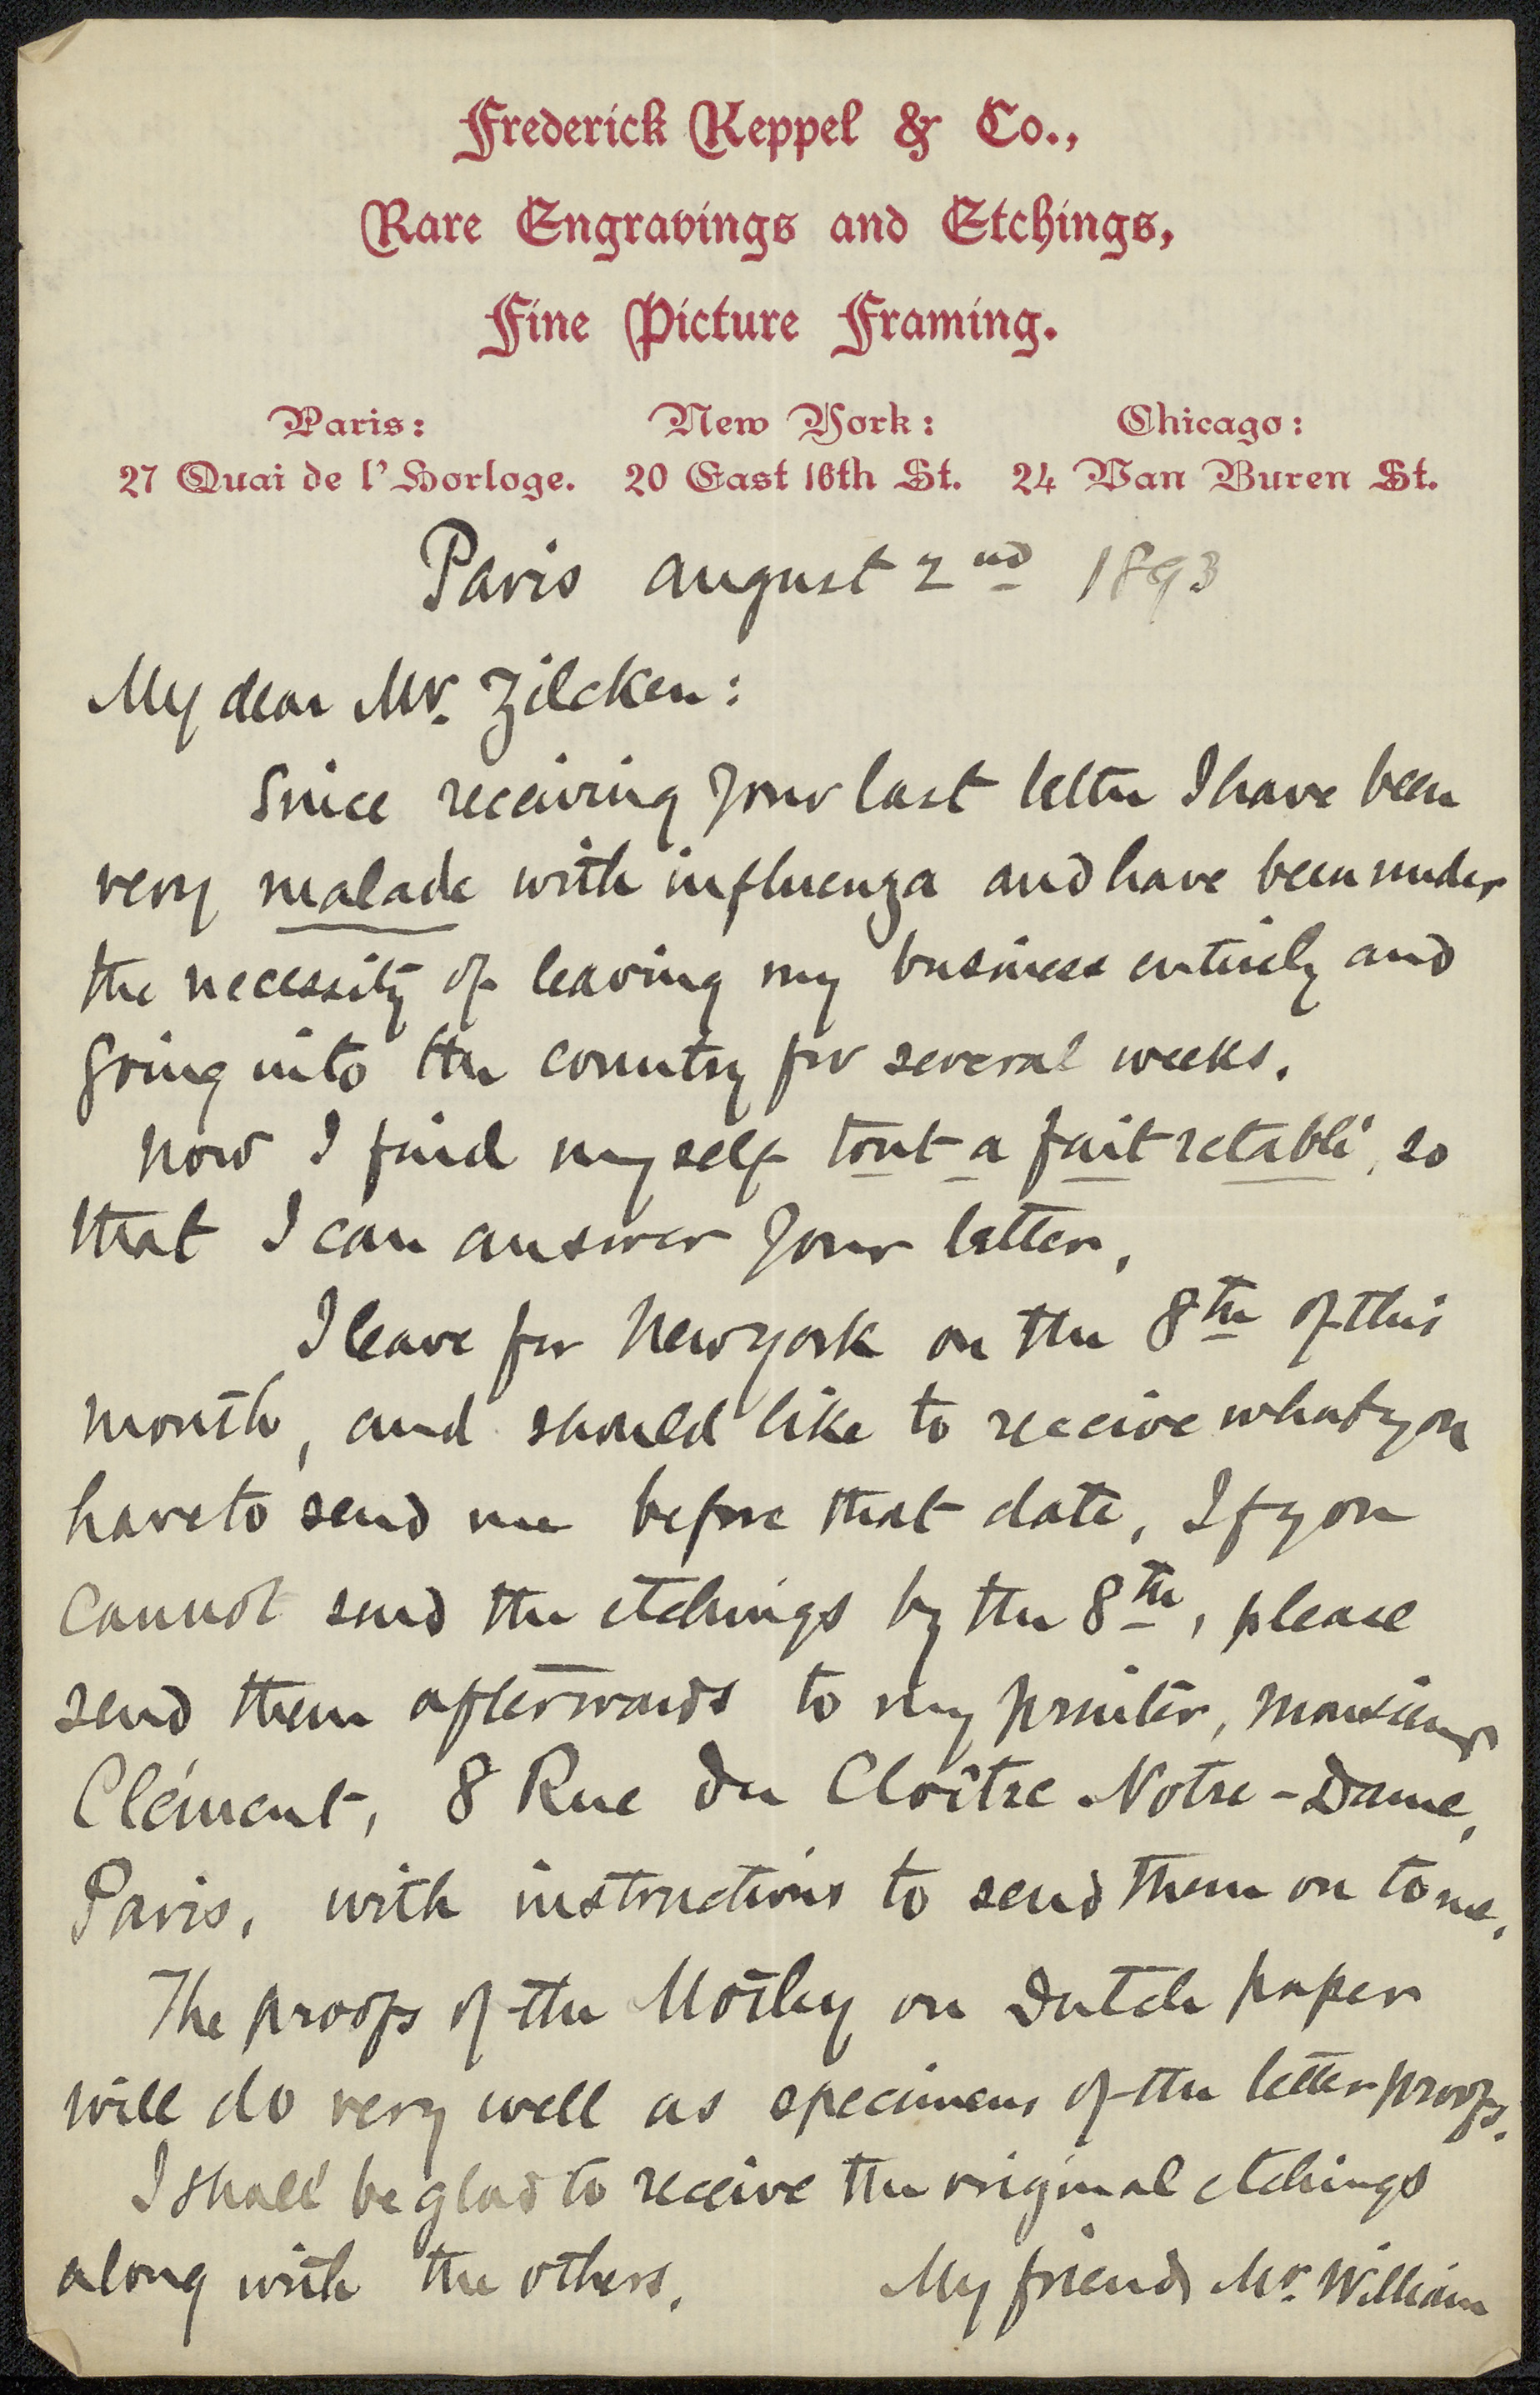 Frederick Keppel & Co.,
Rare Engravings and Etchings,
Fine Picture Framing.
Paris: New York: Chicago:
27 Quai de l'Horloge. 20 East 16th St. 24 Van Buren St.
Paris august 2nd 1893
My dear Mr. Zilcken:
Since receiving your last letter I have been
very malade with influenza and have been under
the necessity of leaving my business entirely and
going into the country for several weeks.
Now I find myself tout a fait retabli, so
that I can answer your letter.
I leave for New York on the 8th of this
month, and should like to receive what you
have to send me before that date. If you
cannot send the etchings by the 8th, please
send them afterwards to my printer, Monsieur
Clément, 8 Rue du Cloître Notre-Dame,
Paris, with instructions to send them on to me.
The proofs of the Motley on Dutch paper
will do very well as specimens of the letter proofs.
I shall be glad to receive the original etchings
along with the others. My friend Mr. William